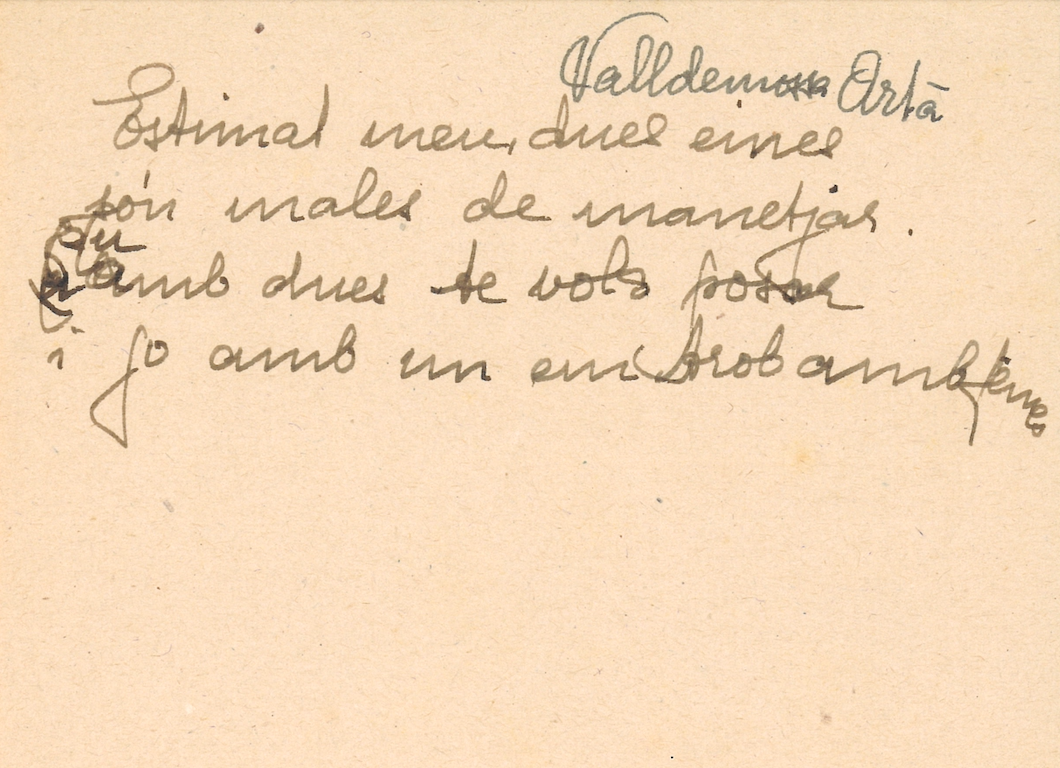 Valldemossa Artà
Estimat meu, dues eines
són males de manetjar.
tu
amb dues te vols posar
i jo amb un em trob amb fenes